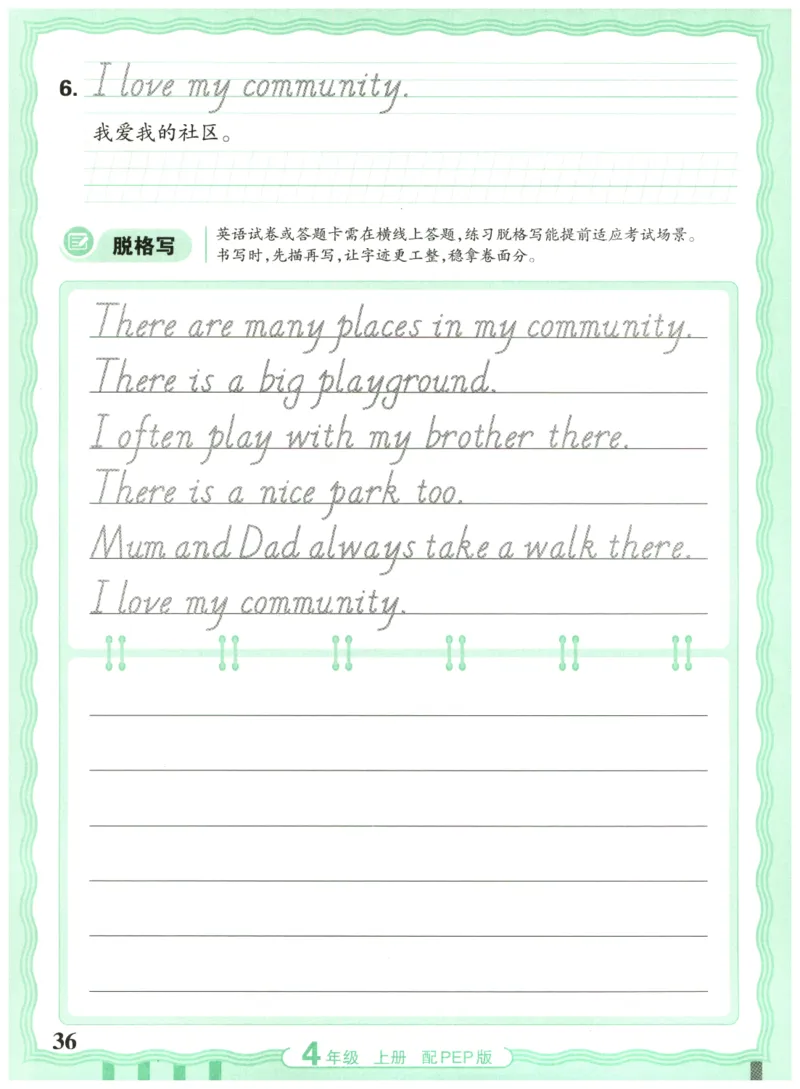 6. I love my community.
我爱我的社区。
脱格写
英语试卷或答题卡需在横线上答题,练习脱格写能提前适应考试场景。
书写时,先描再写,让字迹更工整,稳拿卷面分。
There are many places in my community.
There is a big playground.
I often play with my brother there.
There is a nice park too.
Mum and Dad always take a walk there.
I love my community.
36
4年级 上册 配PEP版